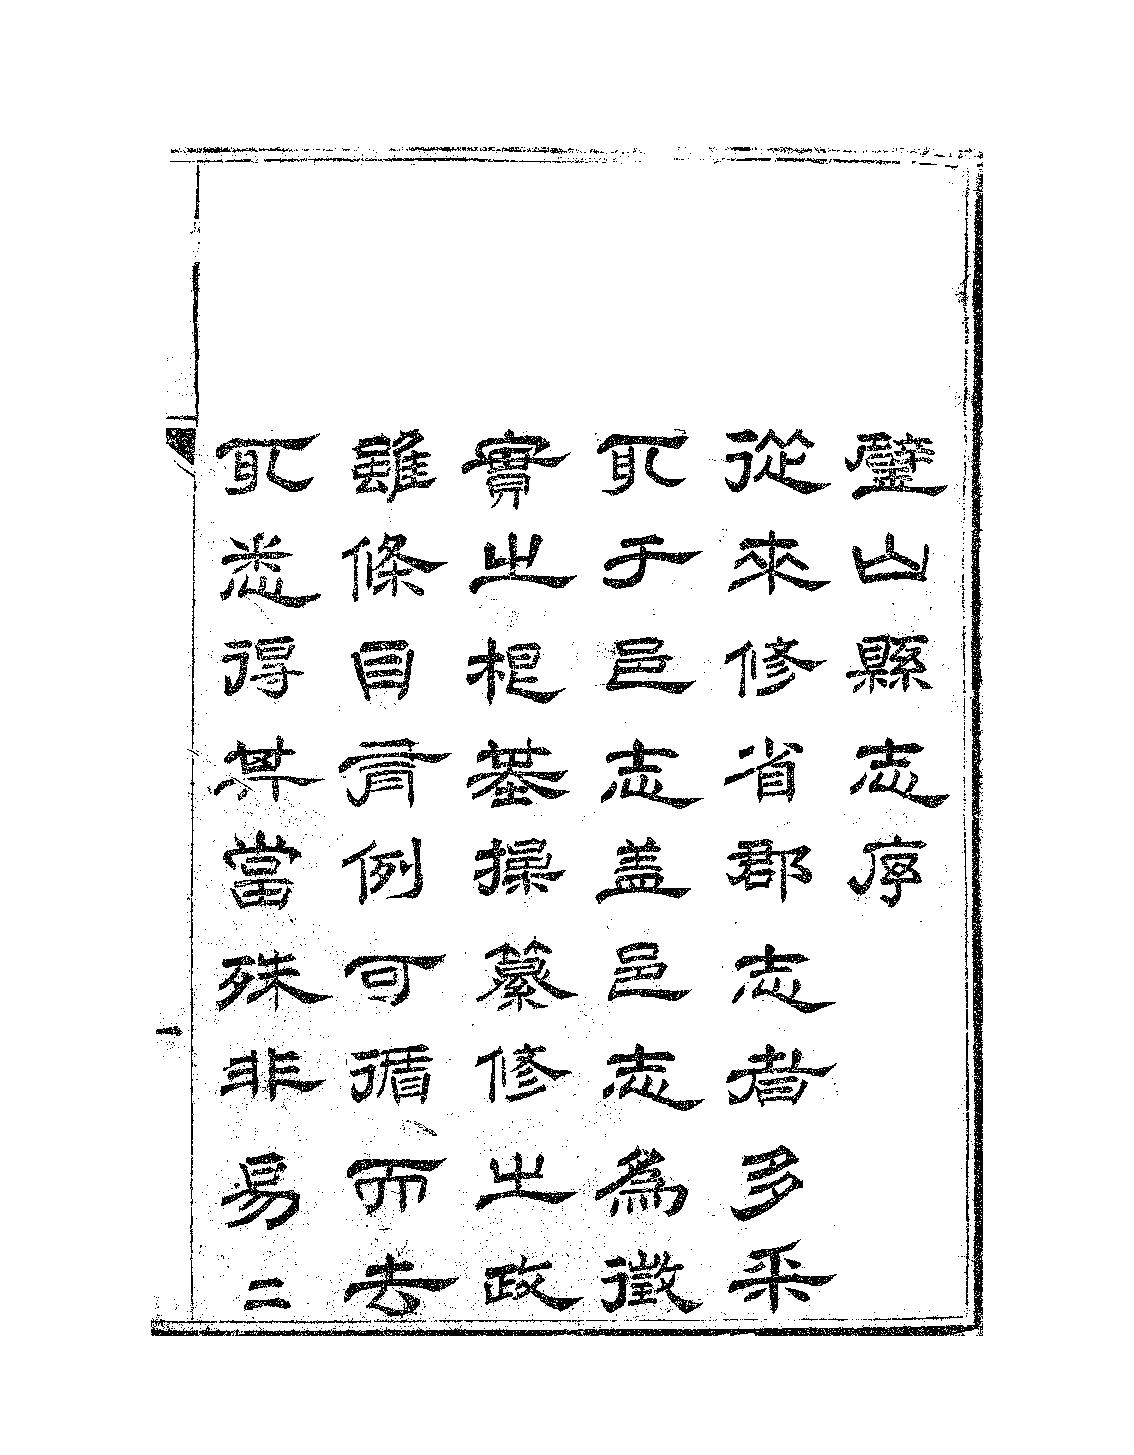 璧山縣志序
從來修省郡志者多采
取于邑志盖邑志為徵
實之根基操纂修之政
雖條目有例可循而去
取悉得其當殊非易二